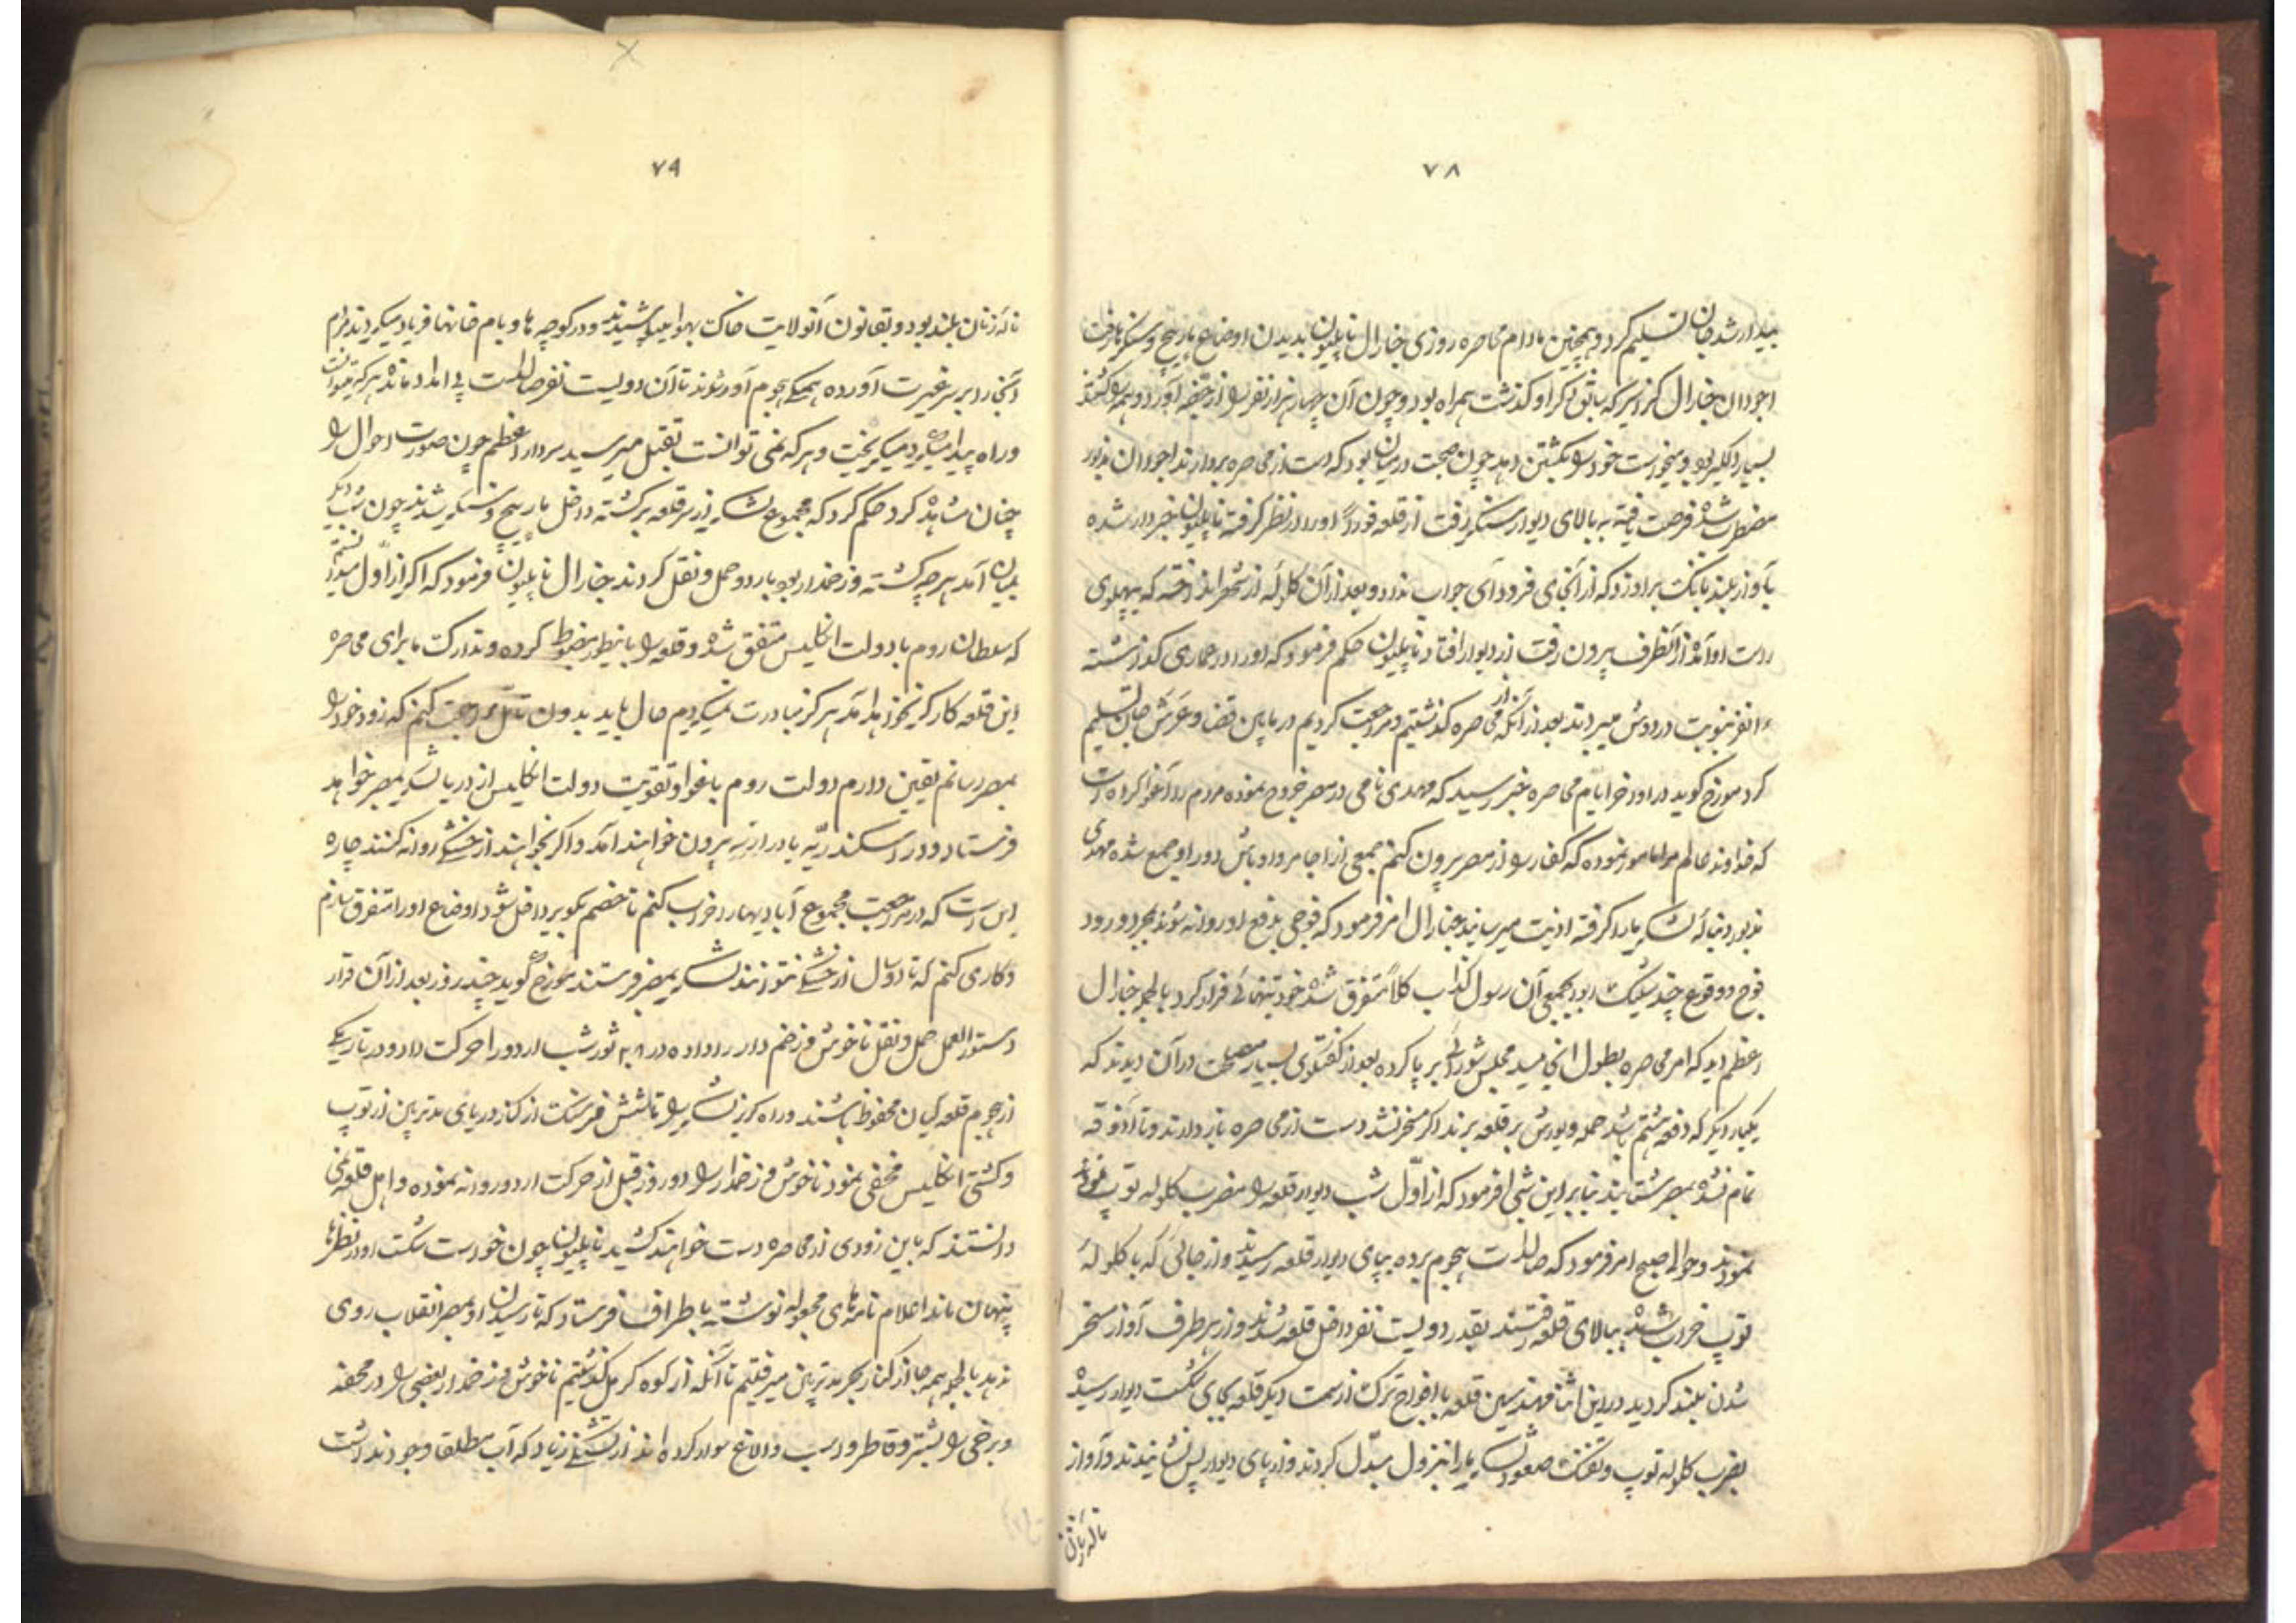 ۷۸
بیدار شد جان تسلیم کرد و همچنین مادام محاصره روزی جنارال ناپلیون بدیدن اوضاع مارپیچ و سنگرها رفت
اجودان جنارال کرازیر که سابق ذکر او گذشت همراه بود و چون آن چهار هزار نفر را از حیفه آورد و همه را کشتند
بسیار دلگیر بود و میخواست خود را بکشتن دهد چون صحبت در میان بود که دست از محاصره بردارند اجودان مذبور
مضطرب شده فرصت یافته به بالای دیوار سنگر رفت از قلعه فوراً او را در نظر گرفته ناپلیون خبردار شده
بآواز بلند بانک بر او زد که از آنجای فرود آی جواب نداد و بعد از آن کلوله از شهر انداخته که به پهلوی
راست او آمده از آنطرف بیرون رفت از دیوار افتاد ناپلیون حکم فرمود که او را در عماری گذاشته
نفر بنوبت در دوش میبردند بعد از آنکه از محاصره گذشتیم و مراجعت کردیم در مابین قضا و عرش جان تسلیم
کرد مورخ گوید در اواخر ایام محاصره خبر رسید که مهدی نامی در مصر خروج نموده مردم را اغوا کرده است
که خداوند عالم مرا مامور نموده که کفار را از مصر بیرون کنم جمعی از اجامر و اوباش دور او جمع شده مهدی
مذبور دنباله لشکر ما را گرفته اذیت میرسانید جنارال امر فرمود که فوجی بدفع او روانه شوند بمجرد ورود
فوج و وقوع چند شلیک جمعی آن رسول کذاب کلاً متفرق شده خود بتنهائی فرار کرد بالجمله جنارال
اعظم دید که امر محاصره بطول انجامید مجلس شورائی بر پا کرده بعد از گفتگوی بسیار مصلحت در آن دیدند که
یکبار دیگر که دفعه هشتم باشد حمله و یورش بر قلعه برند اگر مسخر نشد دست از محاصره باز دارند و تا آذوقه
تمام نشده بمصر شتابند بنابر این شبی امر فرمود که از اول شب دیوار قلعه را بضرب کلوله توپ
نمودند و حوالی صبح امر فرمود که صالدات هجوم برده بپای دیوار قلعه رسیدند و از جائی که با کلوله
توپ خراب شده ببالای قلعه رفتند بقدر دویست نفر داخل قلعه شدند و از هر طرف آواز مسخر
شدن بلند گردید در این اثنا مهندسین قلعه با افواج ترک از سمت دیگر قلعه بجای شکست دیوار رسیده
بضرب کلوله توپ و تفنک صعود لشکر ما را بنزول مبدل کردند و از پای دیوار پس نشانیدند و آواز
ناله زنان
۷۹
ناله زنان بلند بود و بقانون آنولایت خاک بهوا میپاشیدند و در کوچه ها و بام خانها فریاد میکردند مردم
آنجا را بر سر غیرت آورده همگی هجوم آور شوند تا آن دویست نفر صالدات بی امداد مانده هر که میتوانست
و راه پیدا میکرد میگریخت و هر که نمی توانست بقتل میرسید سردار اعظم چون صورت احوال را
چنان مشاهده کرد حکم کرد که مجموع لشکر از سر قلعه برگشته داخل مارپیچ و سنگر شدند چون شب دیگر
بمیان آمد هر چه کشته و زخمدار بود باردو حمل و نقل کردند جنارال ناپلیون فرمود که اگر از اول میدانستم
که سلطان روم با دولت انگلیس متفق شده و قلعه را باینطور مضبوط کرده و تدارک ما برای محاصره
این قلعه کارگر نخواهد آمد هرگز مبادرت نمیکردیم حال باید بدون تأمل مراجعت کنم که زود خود را
بمصر رسانم یقین دارم دولت روم باغوا و تقویت دولت انگلیس از دریا لشکر بمصر خواهد
فرستاد و در اسکندریه یا درازیه بیرون خواهند آمد و اگر بخواهند از خشکی روانه کنند چاره
این است که در مراجعت مجموع آبادیها را خراب کنم تا خصم بکویر داخل شود اوضاع او را متفرق سازم
و کاری کنم که تا دو سال از خشکی نتوانند لشکر بمصر فرستند مورخ گوید چند روز بعد از آن قرار
دستور العمل حمل و نقل ناخوش و زخم دار را داده در ۲۰۸ ثور شب اردو را حرکت داد و در تاریکی
از هجوم قلعه گیان محفوظ باشند و راه گریز لشکر را تا شش فرسنک از کنار دریای مدترین از توپ
و کشتی انگلیس مخفی نمود ناخوش و زخمدار را دو روز قبل از حرکت اردو روانه نموده و اهل قلعه نمی
دانستند که باین زودی از محاصره دست خواهند کشید ناپلیون چون خواست شکست او در نظرها
پنهان ماند اعلام نامه های مجعوله نوشته باطراف فرستاد که تا رسیدن او بمصر انقلاب روی
ندهد بالجمله همه جا از کنار بحر مدترین میرفتیم تا آنکه از کوه کرمل گذشتیم ناخوش و زخمدار بعضی را در محفه
و برخی را بشتر و قاطر و اسب و الاغ سوار کرده اند از تشنگی زیاد که آب مطلقا وجود نداشت